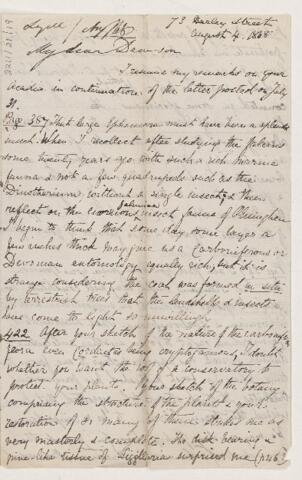 73 Harley Street
Lyell / Aug/68 August 4. 1868
2211/21/19
My dear Dawson
I resume my remarks on your
Acadia in continuation of the letter posted on July
31.
Page 387 That large Ephemera must have been a splendid
insect. When I recollect after studying the faluns
some twenty years ago with such a rich marine
fauna & not a few quadrupeds such as the
Dinotherium without a single insect & then
reflect on the Miocene insect fauna of Oeninghen
I begin to think that some day, some layer a
few inches thick may give us a Carboniferous or
Devonian entomology equally rich, but it is
strange considering the coal was formed in situ
by terrestrial trees that the landshells & insects
have come to light so unwillingly
422 After your sketch of the nature of the carbonife-
rous even Cordaites being cryptogamous, I doubt
whether you want the roof of a conservatory to
protect your plants. Your sketch of the botany
comprising the structure of the plants & your
restoration of so many of them strikes me as
very masterly & complete. The disk-bearing &
pine-like tissue of Sigillaria surprised me